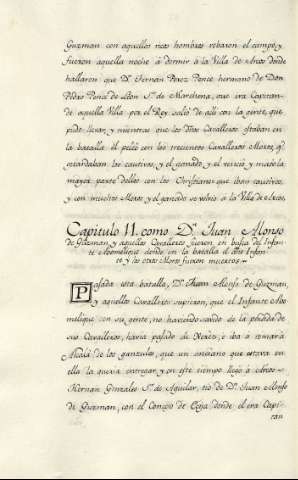 Guzman con aquellos ricos hombres robaron el campo, y
fueron aquella noche á dormir á la Villa de Arcos donde
hallaron que Dn. Fernan Perez Ponce hermano de Don
Pedro Ponce de Leon Sr. de Marchena, que era Capitan
de aquella Villa por el Rey salió de allí con la gente, que
pudo llevar, y mientras que los Cavalleros estaban en
la batalla él peleó con los trecientos Cavalleros Moros, q
guardaban los cautivos, y el ganado, y el venció y mató la
mayor parte dellos con los Christianos que iban cautivos,
y con muchos Moros y el ganado se volvió á la Villa de Arcos,
Capitulo 11. como Dn. Juan Alonso
de Guzman y aquellos Cavalleros fueron en busca del Infan-
te Abomelique donde en la batalla el dho Infan-
te y los otros Moros fueron muertos.
Pasada esta batalla, Dn. Juan Alonso de Guzman,
y aquellos Cavalleros supieron, que el Infante Abo
melique con su gente, no haviendo savido de la perdida de
sus Cavalleros, havia pasado de Xerez, é iba á tomar á
Alcalá de los ganzules, que un anciano que estava en
ella la queria entregar, y en este tiempo llegó á Arcos
Hernan Gonzales Sr. de Aguilar, tio de Dn. Juan Alonso
de Guzman, con el Concejo de Ecija donde el era Capi-
tan